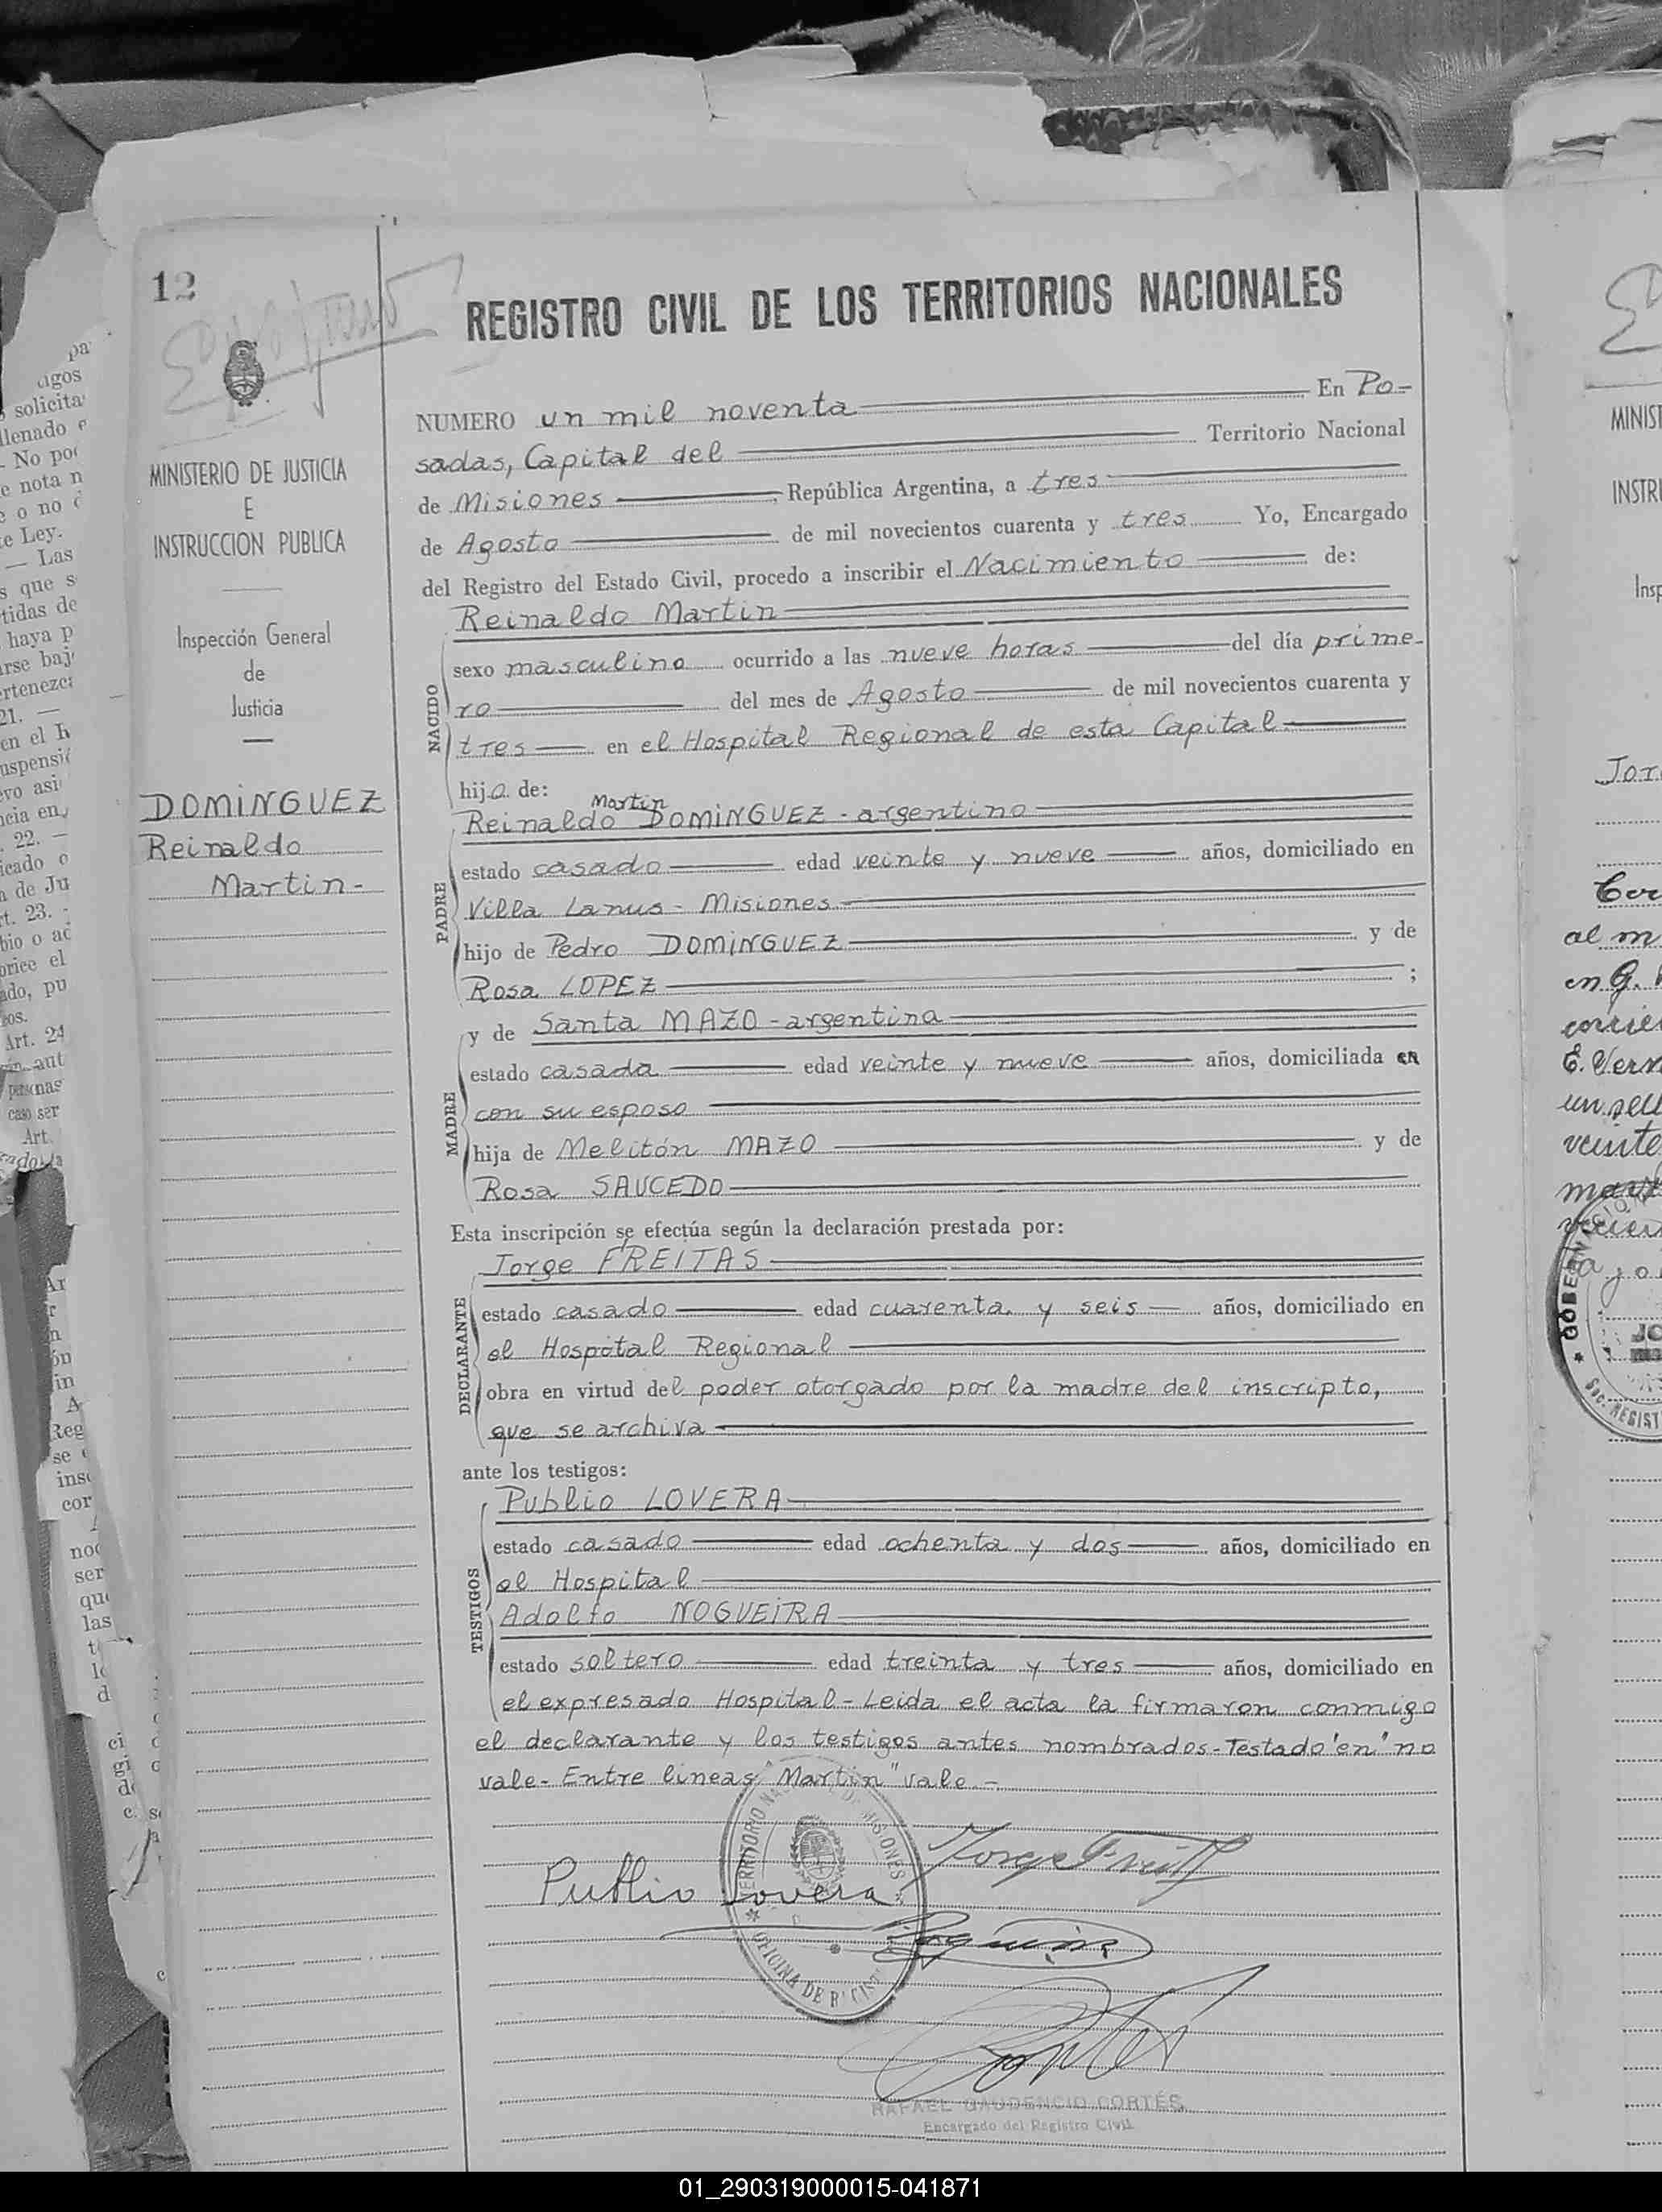 12
MINISTERIO DE JUSTICIA
E
INSTRUCCION PUBLICA
Inspección General
de
Justicia
DOMINGUEZ
Reinaldo
Martin-
REGISTRO CIVIL DE LOS TERRITORIOS NACIONALES
NUMERO un mil noventa En Po-
sadas, Capital del Territorio Nacional
de Misiones, República Argentina, a tres
de Agosto de mil novecientos cuarenta y tres Yo, Encargado
del Registro del Estado Civil, procedo a inscribir el Nacimiento de:
Reinaldo Martin
NACIDO
sexo masculino ocurrido a las nueve horas del día prime-
ro del mes de Agosto de mil novecientos cuarenta y
tres en el Hospital Regional de esta Capital.
hijo de:
Martin
Reinaldo DOMINGUEZ - argentino
PADRE
estado casado edad veinte y nueve años, domiciliado en
Villa Lanus - Misiones
hijo de Pedro DOMINGUEZ y de
Rosa LOPEZ ;
y de Santa MAZO - argentina
MADRE
estado casada edad veinte y nueve años, domiciliada en
con su esposo
hija de Melitón MAZO y de
Rosa SAUCEDO
Esta inscripción se efectúa según la declaración prestada por:
Jorge FREITAS
DECLARANTE
estado casado edad cuarenta y seis años, domiciliado en
el Hospital Regional
obra en virtud del poder otorgado por la madre del inscripto,
que se archiva
ante los testigos:
Publio LOVERA
TESTIGOS
estado casado edad ochenta y dos años, domiciliado en
el Hospital
Adolfo NOGUEIRA
estado soltero edad treinta y tres años, domiciliado en
el expresado Hospital - Leida el acta la firmaron conmigo
el declarante y los testigos antes nombrados - Testado "en" no
vale - Entre lineas "Martin" vale. -
Publio Lovera
RAFAEL GAUDENCIO CORTÉS
Encargado del Registro Civil
01_290319000015-041871